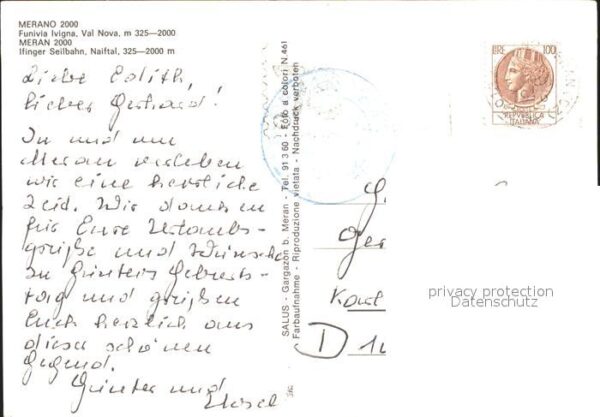 MERANO 2000
Funivia Ivigna, Val Nova, m 325—2000
MERAN 2000
Ifinger Seilbahn, Naiftal, 325—2000 m
Liebe Edith,
lieber Gerhard!
In und um
Meran verleben
wir eine herrliche
Zeit. Wir danken
für Eure Urlaubs-
grüße und Wünsche
zu Günters Geburts-
tag und grüßen
Euch herzlich aus
dieser schönen
Gegend.
Günter und
SALUS - Gargazon b. Meran - Tel. 91 3 60 - Foto a colori N. 461
Farbaufnahme - Riproduzione vietata - Nachdruck verboten
LIRE 100
REPVBBLICA
ITALIANA
G
Ger
Karl
D 1
privacy protection
Datenschutz